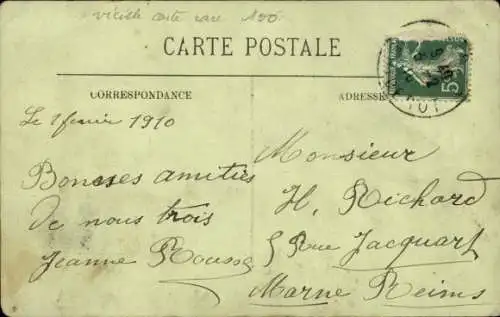 carte rare 100
CARTE POSTALE
CORRESPONDANCE
ADRESSE
Le 2 fevrier 1910
Bonnes amitiés
de nous trois
Jeanne Rousse
Monsieur
H. Richard
5 Rue Jacquart
Marne Reims
5